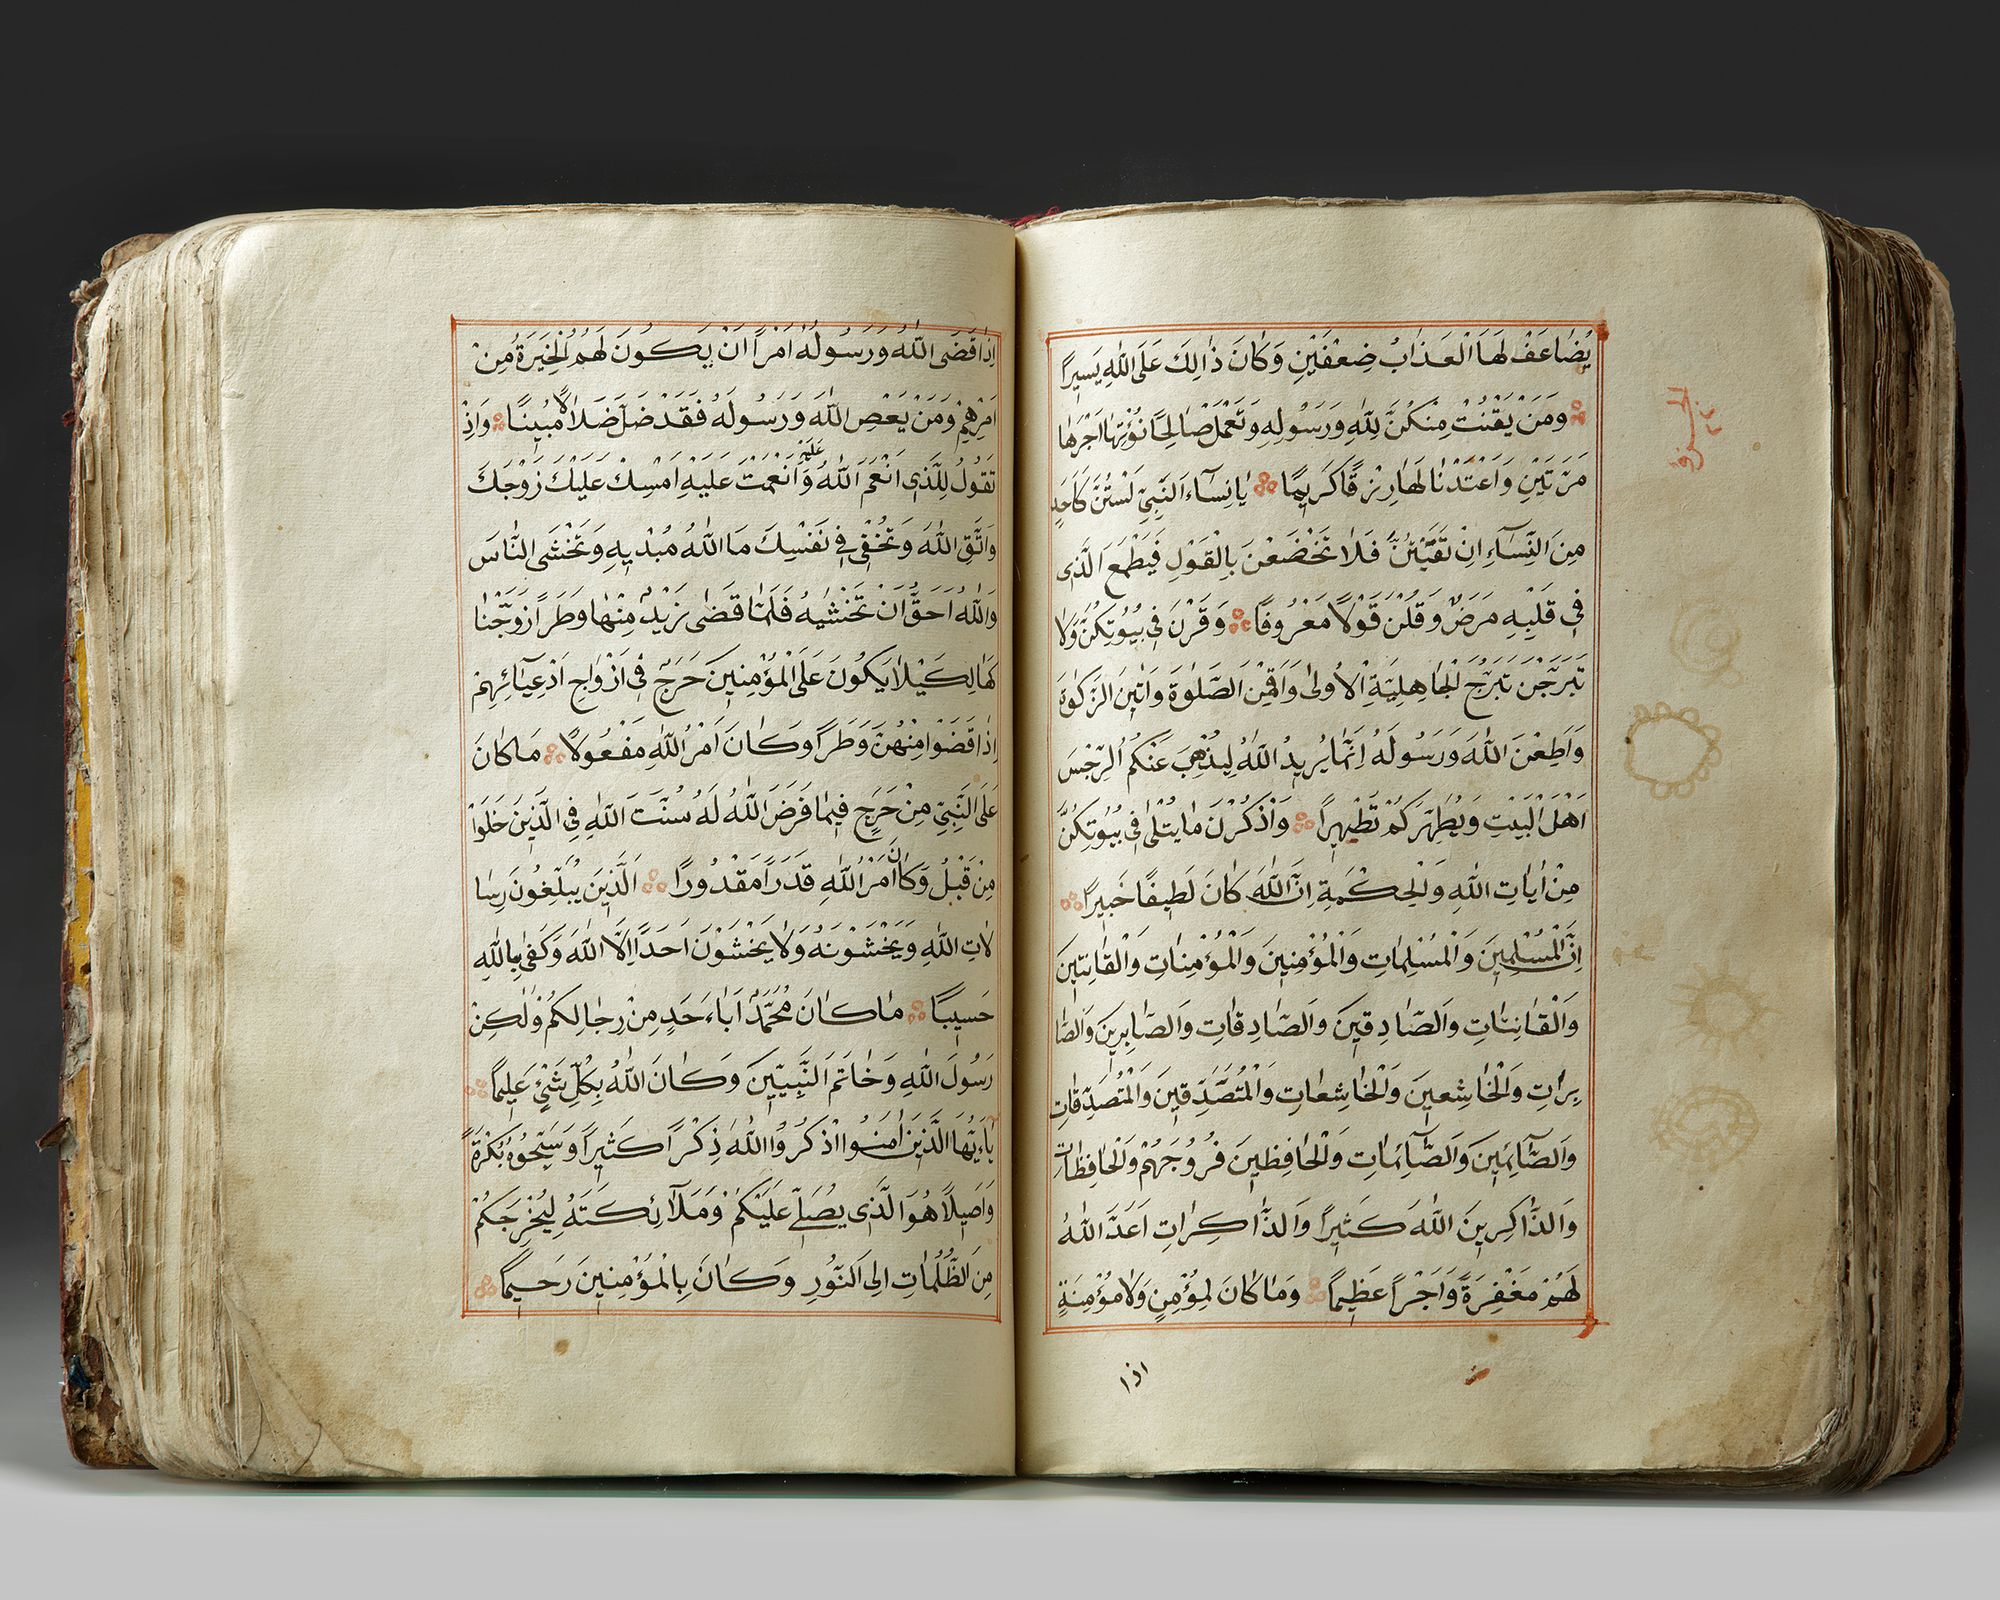 يُضَاعَفْ لَهَا الْعَذَابُ ضِعْفَيْنِ وَكَانَ ذَالِكَ عَلَى اللهِ يَسِيرًا
وَمَنْ يَقْنُتْ مِنْكُنَّ لِلهِ وَرَسُولِهِ وَتَعْمَلْ صَالِحًا نُؤْتِهَا اَجْرَهَا
مَرَّتَيْنِ وَاَعْتَدْنَا لَهَا رِزْقًا كَرِيمًا يَا نِسَآءَ النَّبِيِّ لَسْتُنَّ كَاَحَدٍ
مِنَ النِّسَآءِ اِنْ تَقَيْتُنَّ فَلَا تَخْضَعْنَ بِالْقَوْلِ فَيَطْمَعَ الَّذِى
فِي قَلْبِهِ مَرَضٌ وَقُلْنَ قَوْلًا مَعْرُوفًا وَقَرْنَ فِي بُيُوتِكُنَّ وَلَا
تَبَرَّجْنَ تَبَرُّجَ الْجَاهِلِيَّةِ الْاُولَى وَاَقِمْنَ الصَّلٰوةَ وَاٰتِينَ الزَّكٰوةَ
وَاَطِعْنَ اللهَ وَرَسُولَهُ اِنَّمَا يُرِيدُ اللهُ لِيُذْهِبَ عَنْكُمُ الرِّجْسَ
اَهْلَ الْبَيْتِ وَيُطَهِّرَكُمْ تَطْهِيرًا وَاذْكُرْنَ مَا يُتْلَى فِي بُيُوتِكُنَّ
مِنْ اٰيَاتِ اللهِ وَالْحِكْمَةِ اِنَّ اللهَ كَانَ لَطِيفًا خَبِيرًا
اِنَّ الْمُسْلِمِينَ وَالْمُسْلِمَاتِ وَالْمُؤْمِنِينَ وَالْمُؤْمِنَاتِ وَالْقَانِتِينَ
وَالْقَانِتَاتِ وَالصَّادِقِينَ وَالصَّادِقَاتِ وَالصَّابِرِينَ وَالصَّا
بِرَاتِ وَالْخَاشِعِينَ وَالْخَاشِعَاتِ وَالْمُتَصَدِّقِينَ وَالْمُتَصَدِّقَاتِ
وَالصَّآئِمِينَ وَالصَّآئِمَاتِ وَالْحَافِظِينَ فُرُوجَهُمْ وَالْحَافِظَاتِ
وَالذَّاكِرِينَ اللهَ كَثِيرًا وَالذَّاكِرَاتِ اَعَدَّ اللهُ
لَهُمْ مَغْفِرَةً وَاَجْرًا عَظِيمًا وَمَا كَانَ لِمُؤْمِنٍ وَلَا مُؤْمِنَةٍ
اذا
اِذَا قَضَى اللهُ وَرَسُولُهُ اَمْرًا اَنْ يَكُونَ لَهُمُ الْخِيَرَةُ مِنْ
اَمْرِهِمْ وَمَنْ يَعْصِ اللهَ وَرَسُولَهُ فَقَدْ ضَلَّ ضَلَالًا مُبِينًا وَاِذْ
تَقُولُ لِلَّذِى اَنْعَمَ اللهُ عَلَيْهِ وَاَنْعَمْتَ عَلَيْهِ اَمْسِكْ عَلَيْكَ زَوْجَكَ
وَاتَّقِ اللهَ وَتُخْفِي فِي نَفْسِكَ مَا اللهُ مُبْدِيهِ وَتَخْشَى النَّاسَ
وَاللهُ اَحَقُّ اَنْ تَخْشٰيهُ فَلَمَّا قَضَى زَيْدٌ مِنْهَا وَطَرًا زَوَّجْنَا
كَهَا لِكَيْلَا يَكُونَ عَلَى الْمُؤْمِنِينَ حَرَجٌ فِي اَزْوَاجِ اَدْعِيَآئِهِمْ
اِذَا قَضَوْا مِنْهُنَّ وَطَرًا وَكَانَ اَمْرُ اللهِ مَفْعُولًا مَا كَانَ
عَلَى النَّبِيِّ مِنْ حَرَجٍ فِيمَا فَرَضَ اللهُ لَهُ سُنَّتَ اللهِ فِي الَّذِينَ خَلَوْا
مِنْ قَبْلُ وَكَانَ اَمْرُ اللهِ قَدَرًا مَقْدُورًا اَلَّذِينَ يُبَلِّغُونَ رِسَا
لَاتِ اللهِ وَيَخْشَوْنَهُ وَلَا يَخْشَوْنَ اَحَدًا اِلَّا اللهَ وَكَفَى بِاللهِ
حَسِيبًا مَا كَانَ مُحَمَّدٌ اَبَاءَ حَدٍ مِنْ رِجَالِكُمْ وَلٰكِنْ
رَسُولَ اللهِ وَخَاتَمَ النَّبِيّٖنَ وَكَانَ اللهُ بِكُلِّ شَيْءٍ عَلِيمًا
يَاءَيُّهَا الَّذِينَ اٰمَنُوا اذْكُرُوا اللهَ ذِكْرًا كَثِيرًا وَسَبِّحُوهُ بُكْرَةً
وَاَصِيلًا هُوَ الَّذِى يُصَلِّي عَلَيْكُمْ وَمَلَآئِكَتَهُ لِيُخْرِجَكُمْ
مِنَ الظُّلُمَاتِ اِلَى النُّورِ وَكَانَ بِالْمُؤْمِنِينَ رَحِيمًا